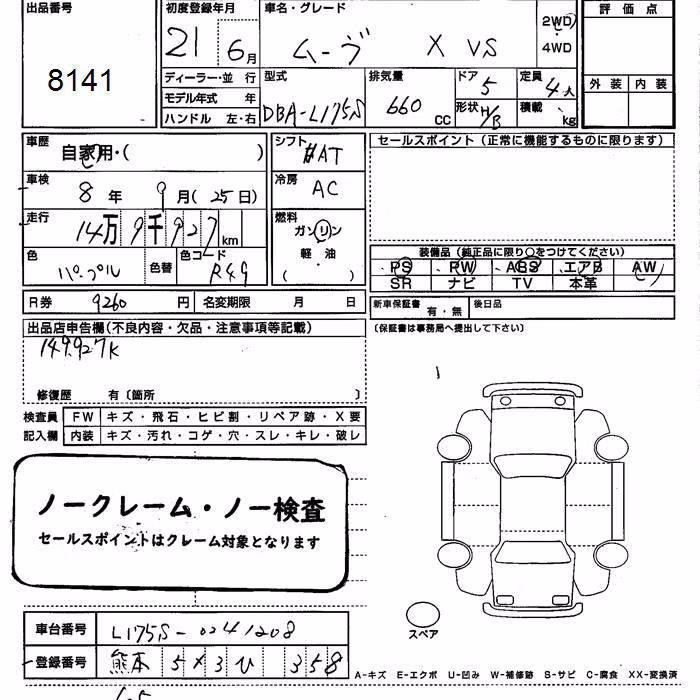 出品番号
8141
初度登録年月
21 6月
車名・グレード
ムーヴ X VS
2WD
4WD
評価点
外装 内装
ディーラー・並行
モデル年式 年
ハンドル 左・右
型式
DBA-L175S
排気量
660 CC
ドア 5
形状 H/B
定員 4人
積載 kg
車歴
自家用・( )
シフト
AT
セールスポイント(正常に機能するものに限ります)
車検
8年 9月(25日)
冷房
AC
走行
14万9千927km
燃料
ガソリン
軽・油
( )
色
パープル
色替
色コード
R49
装備品(純正品に限り○をつけてください)
PS PW ABS エアB AW
SR ナビ TV 本革
R券 9260円 名変期限 月 日
新車保証書 有・無 後日品
(保証書は事務局へ提出して下さい)
出品店申告欄(不良内容・欠品・注意事項等記載)
149.927K
修復歴 有〔箇所 〕
検査員
記入欄
FW キズ・飛石・ヒビ割・リペア跡・X要
内装 キズ・汚れ・コゲ・穴・スレ・キレ・破レ
ノークレーム・ノー検査
セールスポイントはクレーム対象となります
スペア
車台番号 L175S-0241208
登録番号 熊本 5x3 ひ 358
A-キズ E-エクボ U-凹み W-補修跡 S-サビ C-腐食 XX-変換済